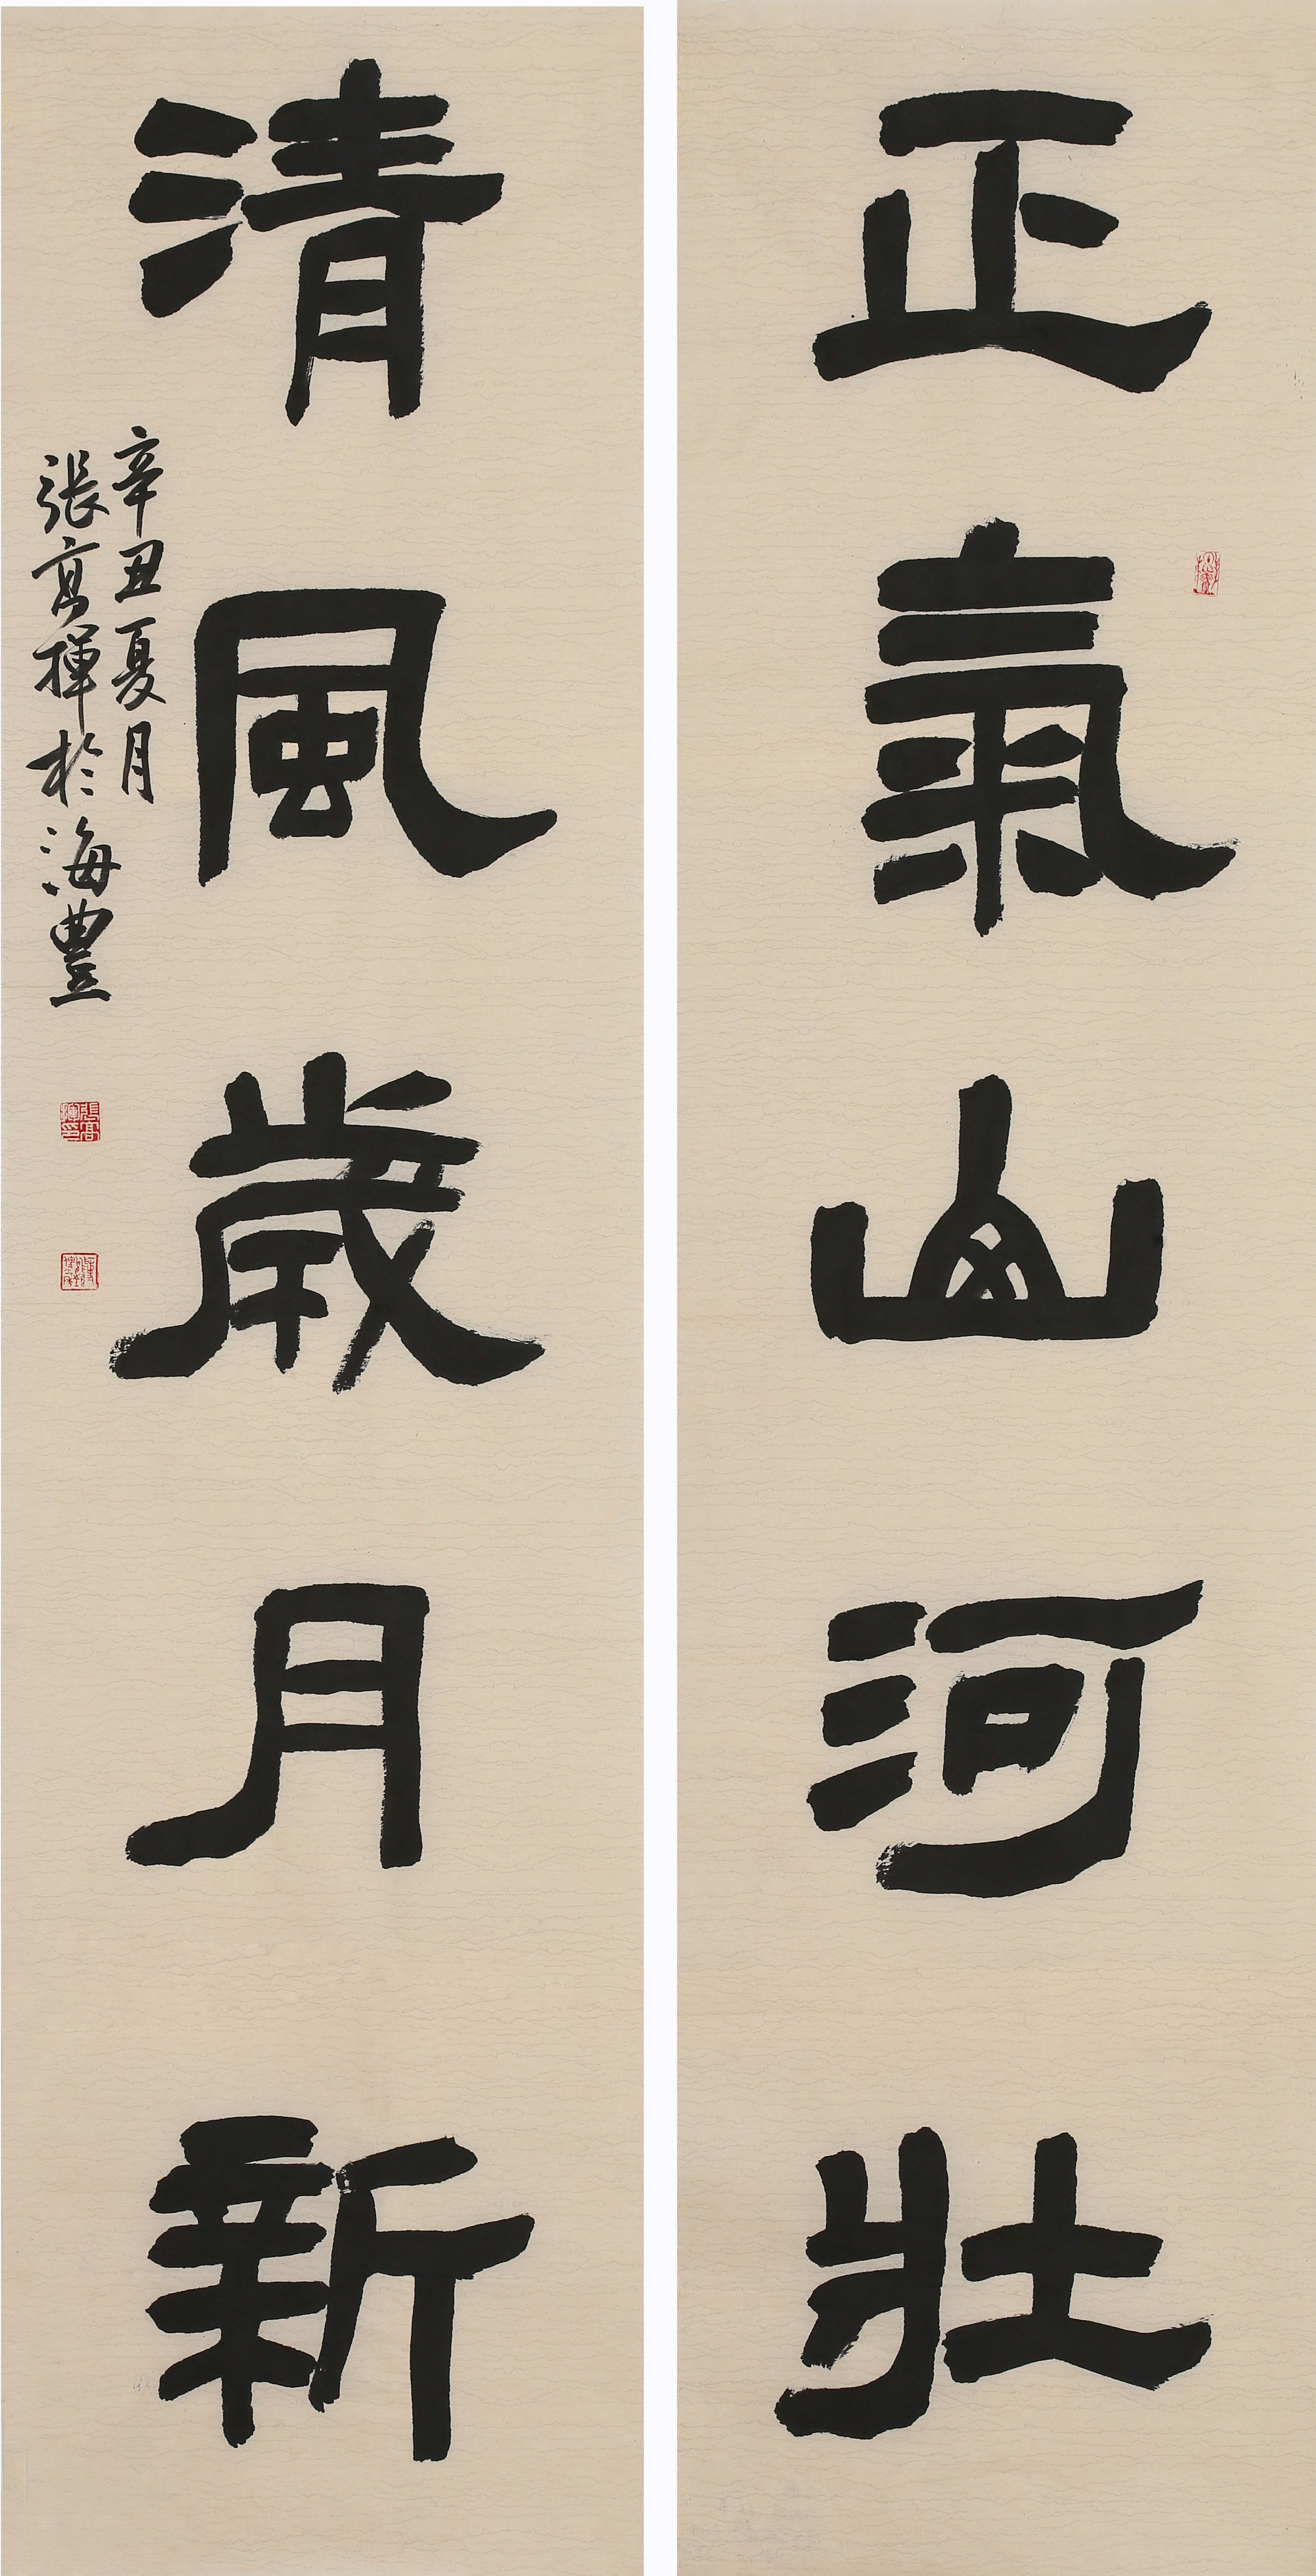 正氣山河壯
清風歲月新
辛丑夏月
張高揮於海豐